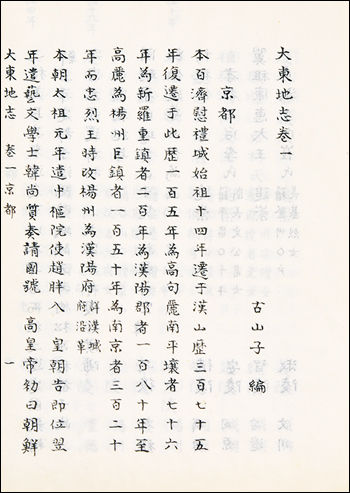 大東地志卷一
古山子 編
京都
本百濟慰禮城始祖十四年遷于漢山歷三百七十五
年復遷于此歷一百五年為高句麗南平壤者七十六
年為新羅重鎮者二百年為漢陽郡者一百八十年至
高麗為楊州巨鎮者一百五十年為南京者三百二十
年而忠烈王時改楊州為漢陽府 詳漢城
府沿革
本朝太祖元年遣中樞院使趙胖入 皇朝告即位翌
年遣藝文學士韓尚質奏請國號 高皇帝勅曰朝鮮
大東地志 卷一 京都 一